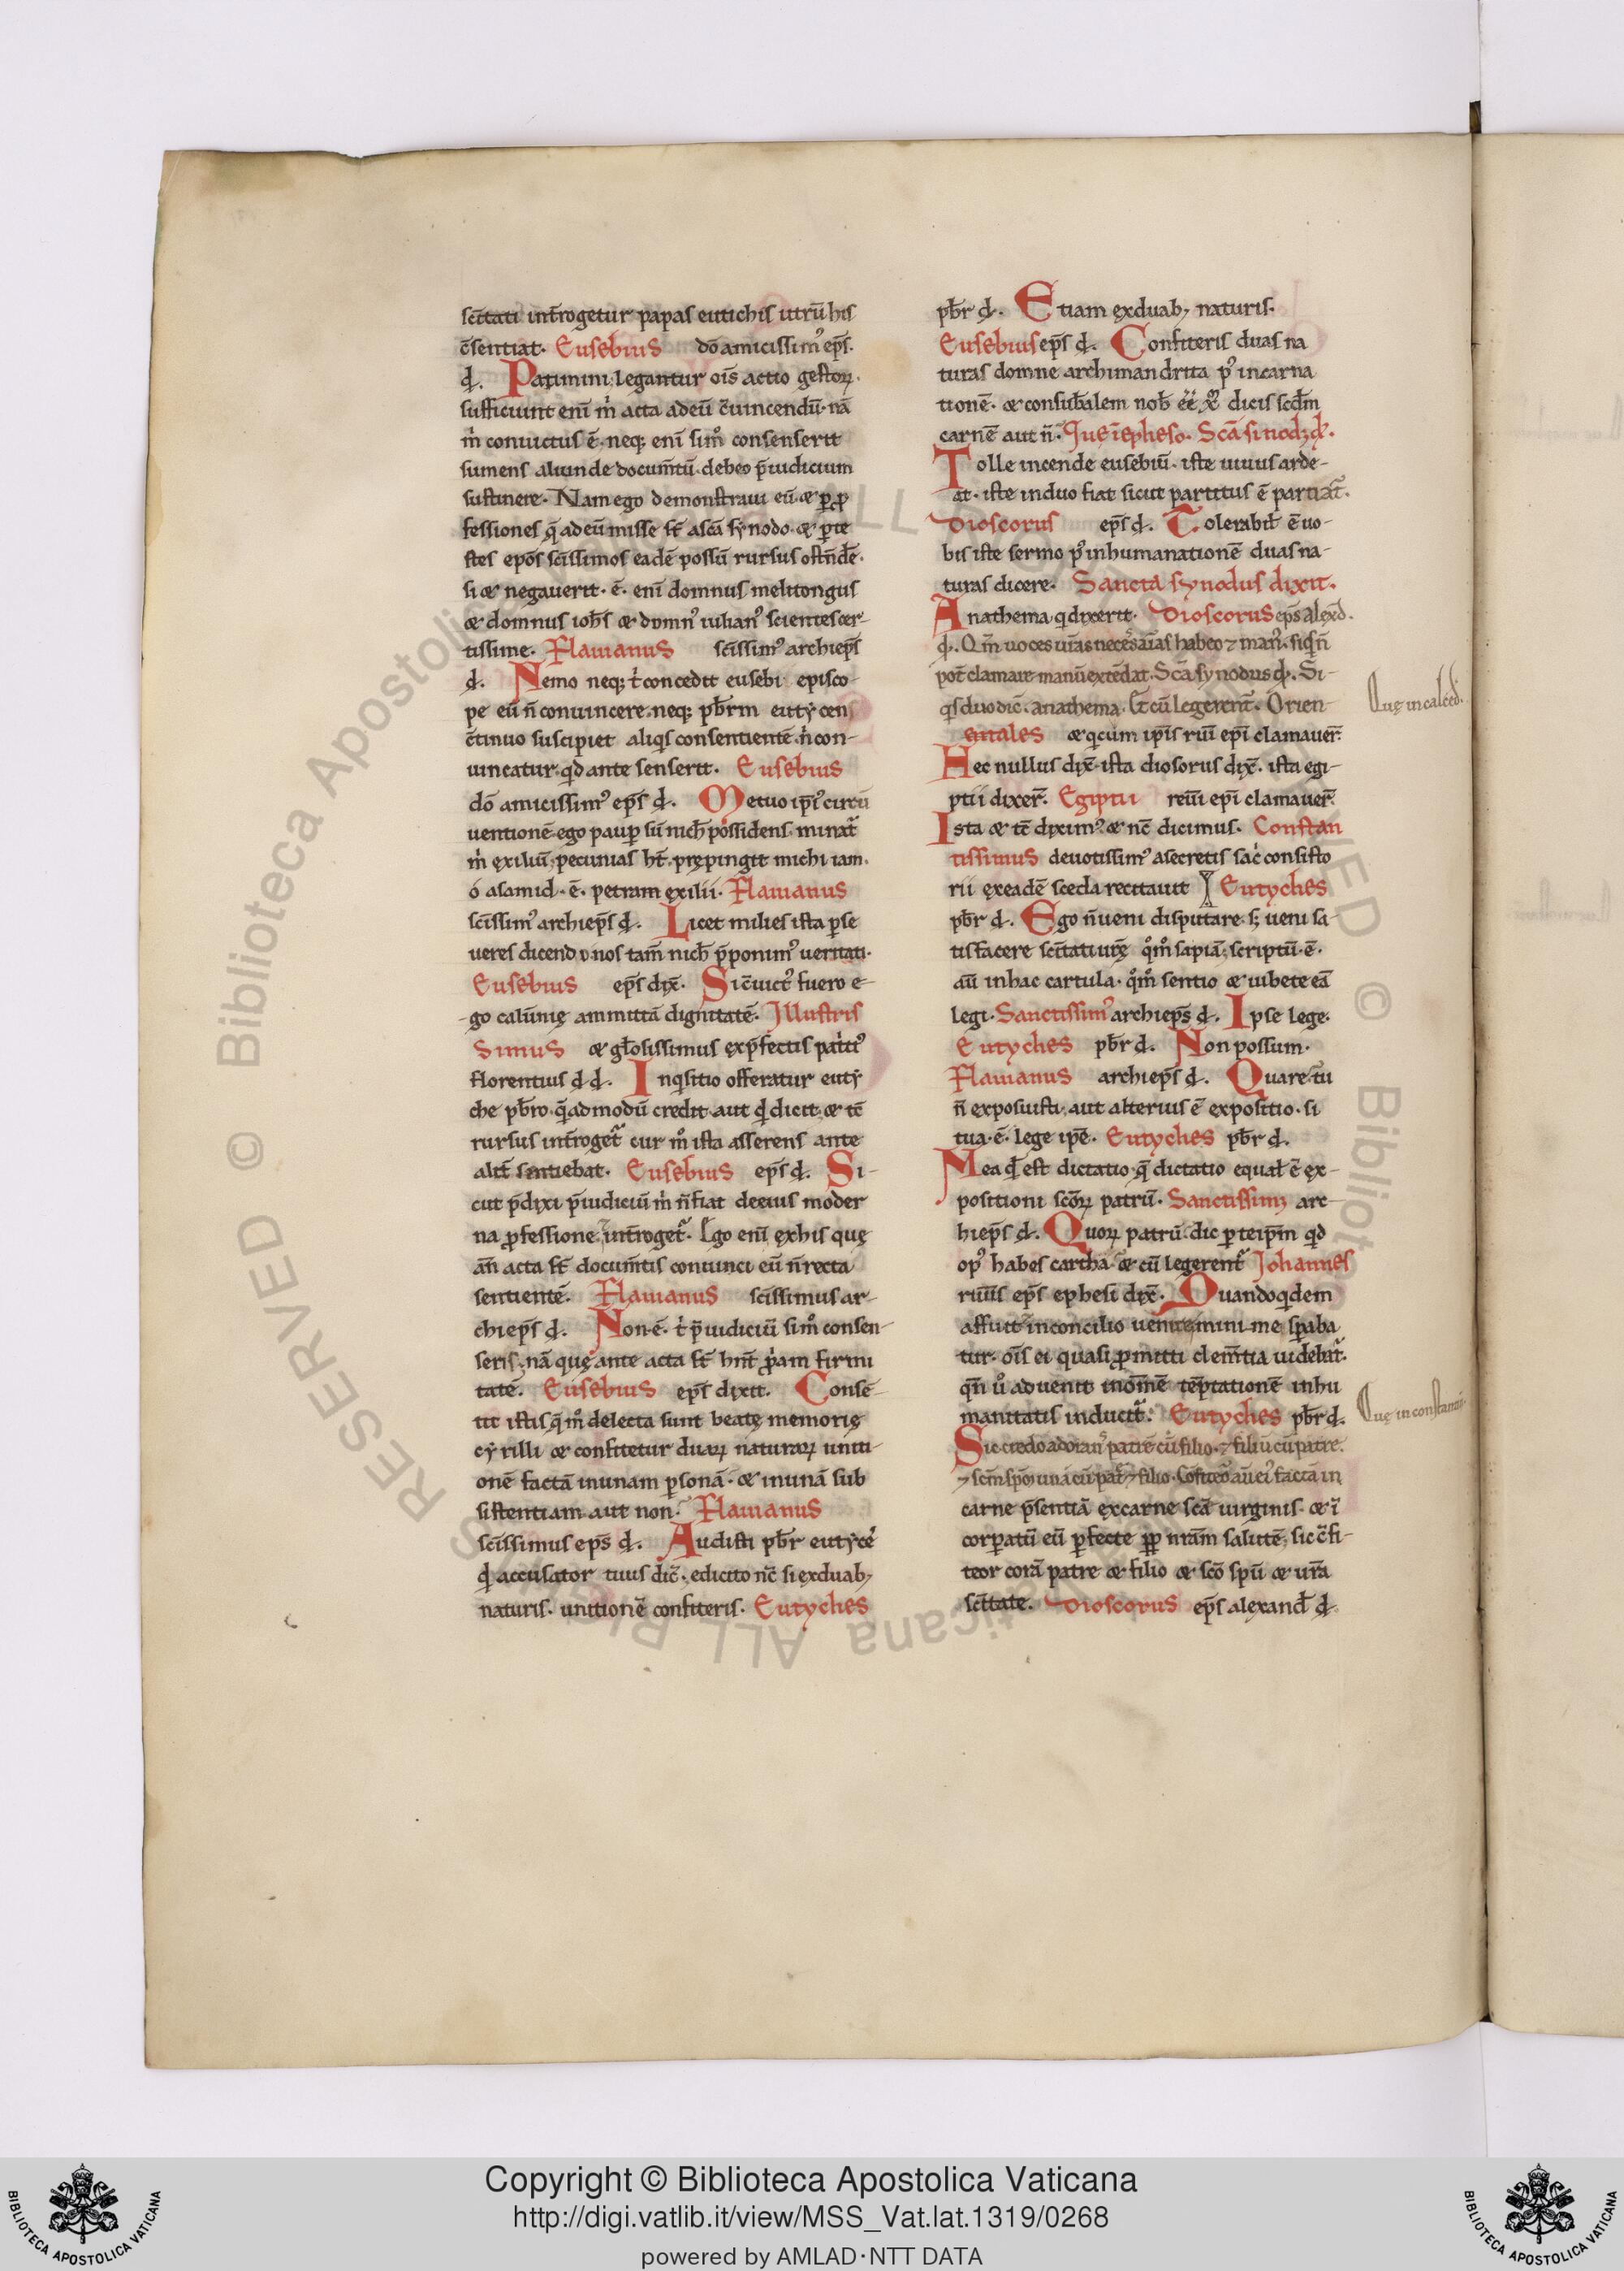 sc̄itati int̄rogetur papas eutichis utrū his
c̄sentiat. Eusebius dō amicissim᾽ ep̄s.
đ. Patimini legantur oīs actio gestoꝝ.
sufficiunt enī m̊ acta adeū c̄uincendū. nā
m̊ conuictus ē. neq; enī simº consensertt
sumens aluinde docum̄tū. debeo p̄iudicium
sustinere. Nam ego demonstraui eū. & ꝑ ꝓ
fessiones q̄ adeū misse st̄ a sc̄a synodo. & ꝑ te
stes ep̄os sc̄issimos eadē possū rursus ostn̄dē.
si & negauertt. ē. enī domnus melitongus
& domnus ioh̄s & domn᾽ iulian᾽ scientes cer-
tissime. Flauianus sc̄issim᾽ archiep̄s
đ. Nemo neq; t̊ concedtt eusebi episco-
pe eū n̄ conuincere. neq; pb̄rm eutycen
c̄tinuo suscipiet aliqis consentientē. n̊ con-
uincatur. qđ ante sensertt. Eusebius
dō amicissim᾽ ep̄s đ. Metuo ip̄i᾽ circū
uentionē ego paup̄ sū nich̄ possidens. minat᷑
m̊ exiliū, pecunias ht̄. p̨pingtt michi iam.
ó asamiđ. ē. petram exilii. Flauianus
sc̄issim᾽ archiep̄s đ. Licet milies ista ꝑse
ueres dicendo nos tam̄ nich̄ p̄ponim᾽ ueritati.
Eusebius ep̄s dix̄. Si c̄uict᾽ fuero e-
go calūnię ammittā dignitatē. Illustris
simus & gl̄osissimus exp̄fectis patiti᾽
florentius đ đ. Inqsitio offeratur euty
che pb̄ro. q̄admodū credit. aut qđ dicit. & tē
rursus int̄roget᷑ cur mº ista asserens ante
alit̄ sentiebat. Eusebius ep̄s đ. Si-
cut p̄dixi p̄iudiciū m̊ n̄ fiat deeius moder
na ꝓfessione int̄roget᷑. Ego enī ex his quę
an̄ acta st̄ docum̄tis conuinci eū n̄ recta
sentientē. Flauianus sc̄issimus ar-
chiep̄s đ. Non ē. t̊ p̄iudiciū simº consen-
seris, nā quę ante acta st̄ hn̄t ꝓpam firmi
tatē. Eusebius ep̄s dixtt. Consē-
tit istis q̄ mº delecta sunt beatę memorię
cyrilli & confitetur duaꝝ naturaꝝ uniti-
onē factā inunam ꝑsonā. & inunā sub
sistentiam. aut non. Flauianus
sc̄issimus ep̄s đ. Audisti pb̄r eutyce
qđ accusator tuus dic̄. edicito nc̄ si exduab;
naturis. unitionē confiteris. Eutyches
pb̄r đ. Etiam exduab; naturis.
Eusebius ep̄s đ. Confiteris duas na
turas domne archimandrita p᾽ incarna
tionē. & consub̄alem nob̄ dicis scđm
carnē aut n̄. Quę ī epheso. Sc̄a sinodꝫ đ.
Tolle incende eusebiū. iste uiuus arde-
at. iste induo fiat sicut partitus ē partiat᷑.
Dioscorus ep̄s đ. Tolerabit̄ ē uo-
bis iste sermo p᾽ inhumanationē duas na-
turas dicere. Sancta synodus dixit.
Anathema q dixertt. Dioscorus ep̄s alex̄d.
đ. Qm̄ uoces ur̄as necessarias habeo & man᾽. si q n̄
pot̄ clamare manū extēdat. Sc̄a synodus đ. Si-
q's duo dic̄. anathema. Et cū legerent᷑. Orien-
entales & qcum ip̄is rūi ep̄i clamauer̄.
Hec nullus dix̄. ista diosorus dix̄. ista egi-
ptii dixer̄. Egiptii reūi ep̄i clamauer̄.
Ista & tc̄ dixim᾽. & nc̄ dicimus. Constan
tissimus deuotissim᾽ asecretis sac̊ consisto
rii exeadē sceda recitauit Eutyches
pb̄r đ. Ego n̄ ueni disputare. s; ueni sa-
tisfacere sc̄itati ur̄ę qº mº sapiā, scriptū. ē.
aū inhac cartula. qº mº sentio & iubete eā
legi. Sanctissim᾽ archiep̄s đ. Ipse lege.
Eutyches pb̄r đ. Non possum.
Flauianus archiep̄s đ. Quare tu
n̄ exposuisti, aut alterius ē expositio. si
tua. ē. lege ip̄e. Eutyches pb̄r đ.
Mea qđ est dictatio. q̄ dictatio equal̄ ē ex-
positioni sc̄oꝝ patrū. Sanctissimꝫ arc-
hiep̄s đ. Quoꝝ patrū. dic ꝑ teip̄m qđ
op᾽ habes cartha. & cū legerent᷑ Johannes
rūis ep̄s ephesi dix̄. Quando qdem
affuit inconcilio uenite mini me sꝑaba
tur. oīs ei quasi ꝓmitti clem̄tia uidebat᷑.
qn̄ uº aduenit inom̄ē tēptationē inhu
manitatis inducit᷑. Eutyches pb̄r đ.
Sic credo adoran᾽ patrē cū filio. & filiū cū patre.
& scm̄ spm̄ unā cū pat̄ & filio. Confiteor aū ei᾽ factā in
carne p̄sentiā excarne scā uirginis. & ī
corꝑatū eū ꝑfecte ꝓp nr̄am salutē, sic c̄fi-
teor corā patre & filio & scō spū & ur̄a
sc̄itate. Dioscorus ep̄s alexand̄ đ.
Quę in calced.
Quę in constantin.
Copyright © Biblioteca Apostolica Vaticana
http://digi.vatlib.it/view/MSS_Vat.lat.1319/0268
powered by AMLAD·NTT DATA